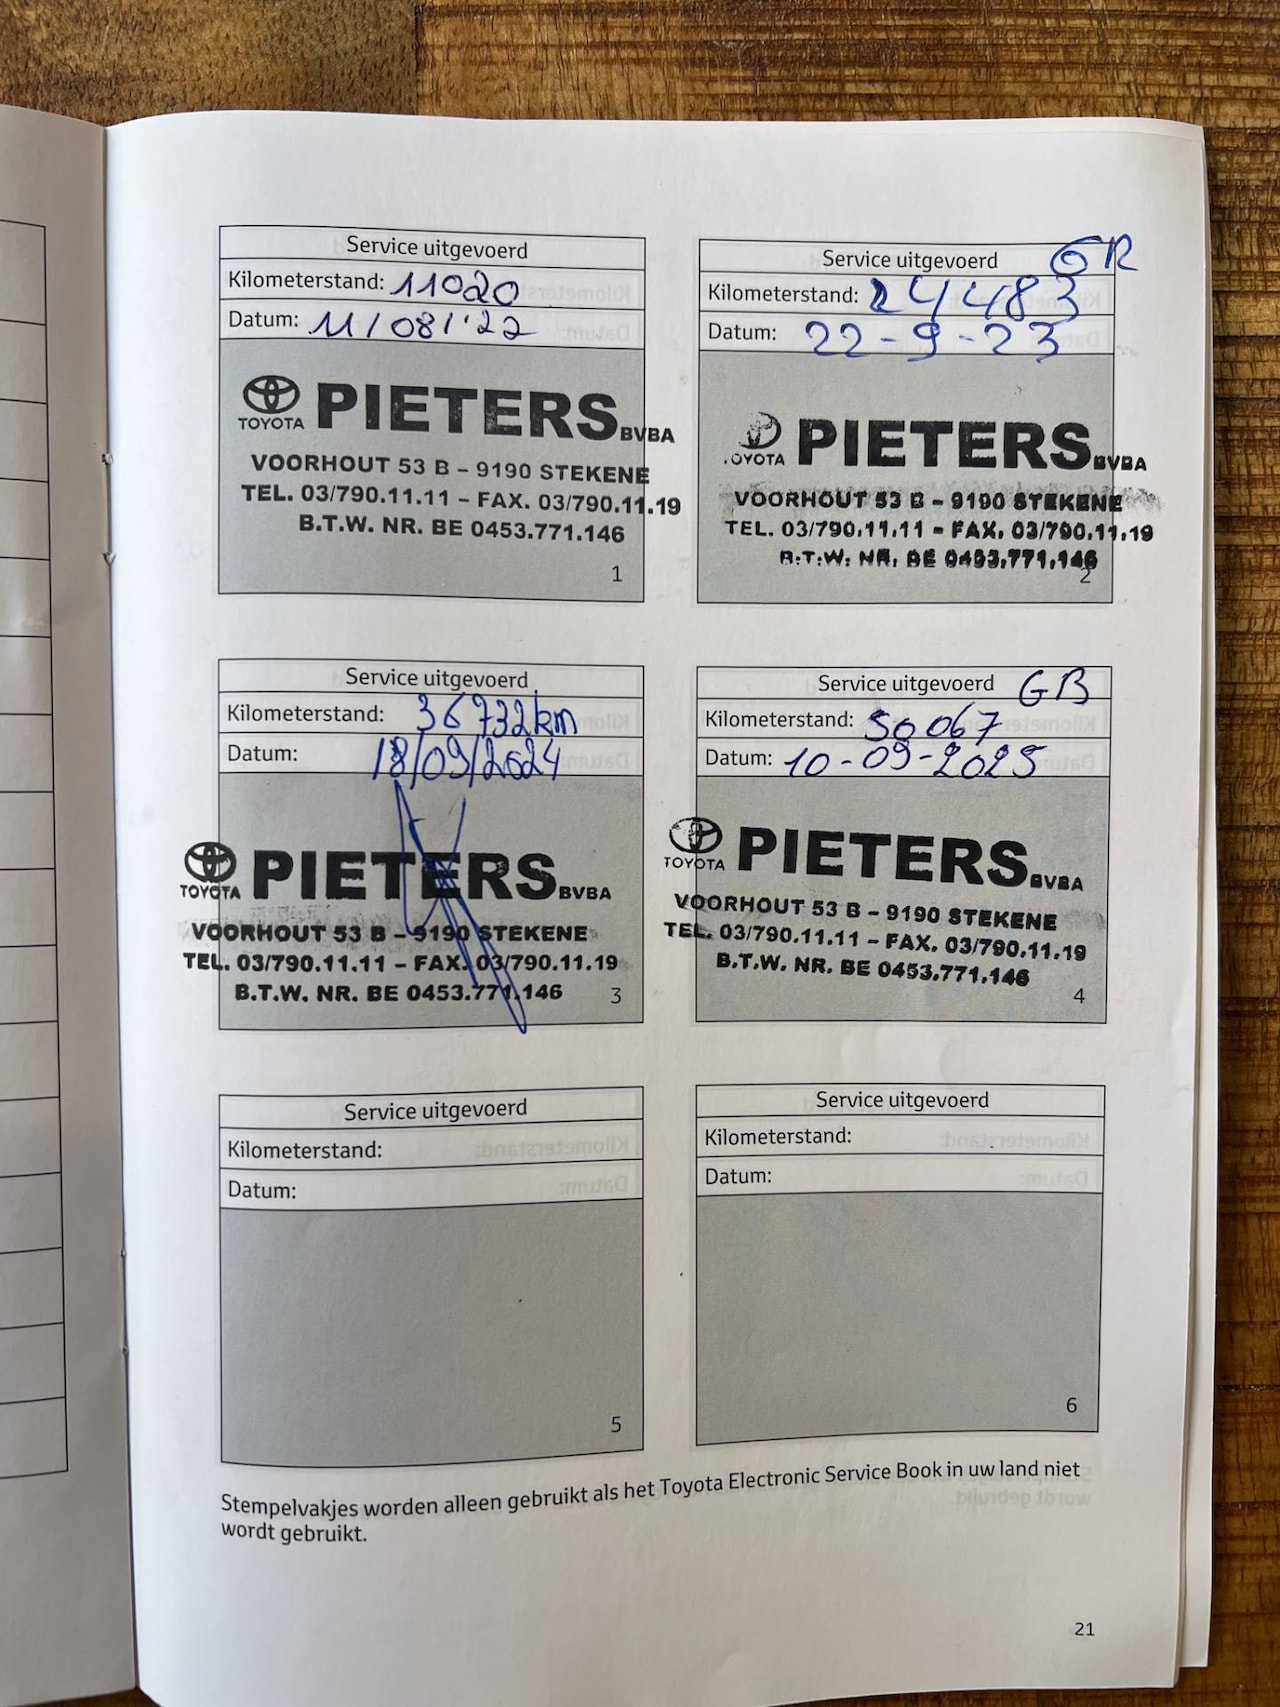 Service uitgevoerd
Kilometerstand: 11020
Datum: 11/08/'22
TOYOTA PIETERS BVBA
VOORHOUT 53 B – 9190 STEKENE
TEL. 03/790.11.11 – FAX. 03/790.11.19
B.T.W. NR. BE 0453.771.146
1
Service uitgevoerd GR
Kilometerstand: 24483
Datum: 22-9-23
TOYOTA PIETERS BVBA
VOORHOUT 53 B – 9190 STEKENE
TEL. 03/790.11.11 – FAX. 03/790.11.19
B.T.W. NR. BE 0453.771.146
2
Service uitgevoerd
Kilometerstand: 36732km
Datum: 18/09/2024
TOYOTA PIETERS BVBA
VOORHOUT 53 B – 9190 STEKENE
TEL. 03/790.11.11 – FAX. 03/790.11.19
B.T.W. NR. BE 0453.771.146
3
Service uitgevoerd GB
Kilometerstand: 50067
Datum: 10-09-2025
TOYOTA PIETERS BVBA
VOORHOUT 53 B – 9190 STEKENE
TEL. 03/790.11.11 – FAX. 03/790.11.19
B.T.W. NR. BE 0453.771.146
4
Service uitgevoerd
Kilometerstand:
Datum:
5
Service uitgevoerd
Kilometerstand:
Datum:
6
Stempelvakjes worden alleen gebruikt als het Toyota Electronic Service Book in uw land niet
wordt gebruikt.
21